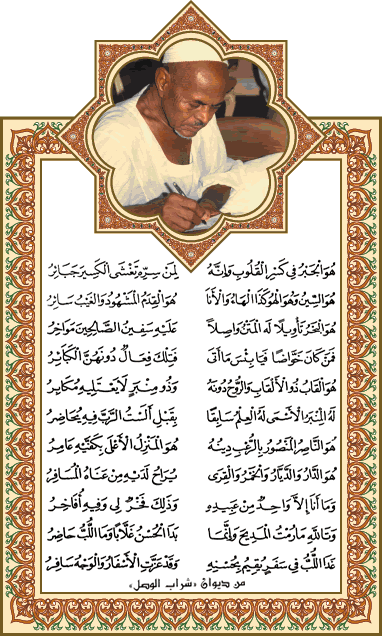 هُوَ الْجَبْرُ فِي كَسْرِ الْقُلُوبِ وَإِنَّهُ لِمَنْ سِرُّهُ تَغْشَى الْكَسِيرَ جَبَائِرُ
هُوَ السِّينُ وَهُوَ الْهُوَ كَذَا الْهَاءُ وَالْأَنَا هُوَ الْقِدَمُ الْمَشْهُودُ وَالْغَيْبُ سَائِرُ
هُوَ الْبَحْرُ تَأْوِيلًا لَهُ الْمَتْنُ وَاصِلًا عَلَيْهِ سَفِينُ الصَّالِحِينَ مَوَاخِرُ
فَمَنْ كَانَ خَوَّاضًا فَيَا بِئْسَ مَا أَتَى فَتِلْكَ فِعَالٌ دُونَهُنَّ الْكَبَائِرُ
هُوَ الْقَابُ ذُو الْأَلْقَابِ وَالرُّوحُ دُونَهُ وَذُو مِنْبَرٍ لَا يَعْتَلِيهِ مُكَابِرُ
لَهُ الْمِنْبَرُ الْأَسْمَى لَهُ الْعِلْمُ سَابِقًا بِقَبْلِ أَلَسْتُ الرَّبَّ فِيهِ يُحَاضِرُ
هُوَ النَّاصِرُ الْمَنْصُورُ بِالرُّعْبِ دِينُهُ هُوَ الْمَنْزِلُ الْأَعْلَى بِكَعْبَتِهِ عَامِرُ
هُوَ الدَّارُ وَالدَّيَّارُ وَالْخَيْرُ وَالْقِرَى يُرَاحُ لَدَيْهِ مِنْ عَنَاهُ الْمُسَافِرُ
وَمَا أَنَا إِلَّا وَاحِدٌ مِنْ عَبِيدِهِ وَذَلِكَ فَخْرٌ لِي وَفِيهِ أُفَاخِرُ
وَتَاللَّهِ مَا رُمْتُ الْمَدِيحَ وَإِنَّمَا بَدَا الْحُسْنُ غَلَّابًا وَمَا اللُّبُّ حَاضِرُ
غَدَا اللُّبُّ فِي سَفَرٍ يُقِيمُ بِحُسْنِهِ وَقَدْ عَزَّتِ الْأَسْفَارُ وَالْوَجْهُ سَافِرُ
من ديوان «شراب الوصل»